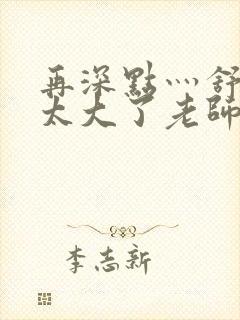 再深點灬舒
太大了老師
李志新